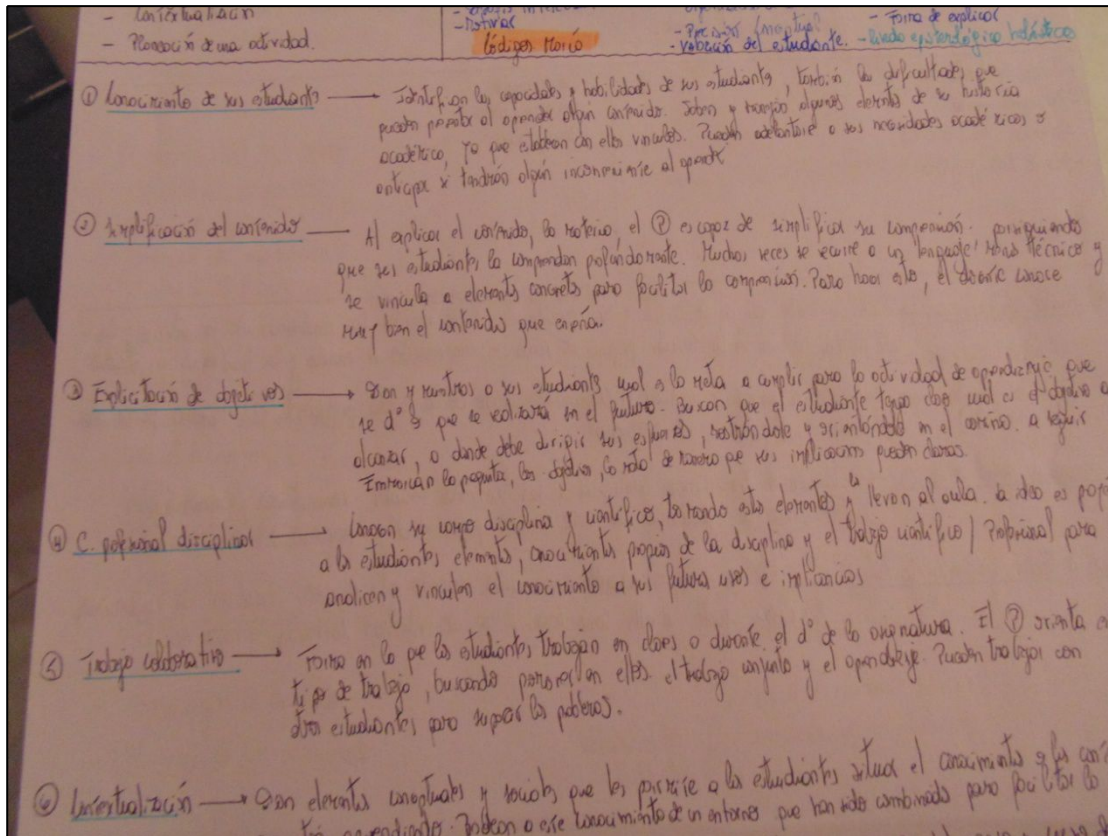 - Contextualización
- Planeación de una actividad.
- Motivar
Códigos María
- Precisión conceptual
- Valoración del estudiante.
- Forma de explicar
- Vínculo epistemológico
① Conocimiento de sus estudiantes → Identifican las capacidades y habilidades de sus estudiantes, también las dificultades que
pueden presentar al aprender algún contenido. Saben y manejan algunos elementos de su historia
académica, ya que establecen con ellos vínculos. Pueden adelantarse a sus necesidades académicas o
anticipar si tendrán algún inconveniente al aprender
② Simplificación del contenido → Al explicar el contenido, la materia, el Ⓟ es capaz de simplificar su comprensión. persiguiendo
que sus estudiantes la comprendan profundamente. Muchas veces se recurre a un lenguaje menos técnico y
se vincula a elementos concretos para facilitar la comprensión. Para hacer esto, el docente conoce
muy bien el contenido que enseña.
③ Explicitación de objetivos → Dan y muestras a sus estudiantes cual es la meta a cumplir para la actividad de aprendizaje que
se d° y que se realizará en el futuro. Buscan que el estudiante tenga claro cual es el objetivo a
alcanzar, o donde debe dirigir sus esfuerzos, mostrándole y orientándolo en el camino a seguir
Enuncian la pregunta, los objetivos, la meta de manera que sus implicancias queden claras.
④ C. profesional disciplinar → Conocen su campo disciplinar y científico, tomando estos elementos y los llevan al aula. La idea es
a los estudiantes elementos, conocimientos propios de la disciplina y el trabajo científico / Profesional para
analicen y vinculen el conocimiento a sus futuros usos e implicancias
⑤ Trabajo colaborativo → Forma en la que los estudiantes trabajan en clases o durante el d° de la asignatura. El Ⓟ orienta
tipo de trabajo, buscando promover en ellos el trabajo conjunto y el aprendizaje. Pueden trabajar con
otros estudiantes para superar los problemas.
⑥ Contextualización → Son elementos conceptuales y sociales que les permite a los estudiantes situar el conocimiento
aprendiendo. Rodean a ese conocimiento de un entorno que han sido combinados para facilitar la